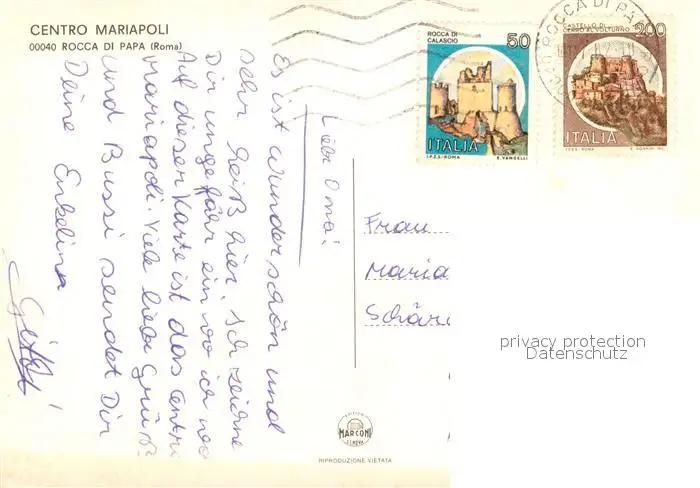 CENTRO MARIAPOLI
00040 ROCCA DI PAPA (Roma)
Liebe Oma!
Es ist wunderschön und
sehr heiß hier. Ich zeichne
Dir ungefähr ein wo ich wo
Auf dieser Karte ist das Centro
Mariapoli. Viele liebe Grüße
und Bussi sendet Dir
Deine Enkelin
ROCCA DI
CALASCIO
50
ITALIA
I.P.Z.S.-ROMA E. VANGELLI
CASTELLO DI
CERRO AL VOLTURNO
200
ITALIA
I.P.Z.S.-ROMA
ROCCA DI PAPA
Frau
Maria
Schär
privacy protection
Datenschutz
MARCONI
GENOVA
RIPRODUZIONE VIETATA